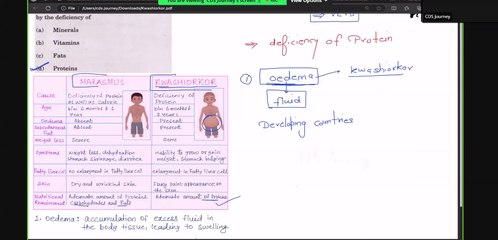 You are viewing CDS Journey's screen
View Options
C:/Users/cds.journey/Desktop/Kwashiorkor.pdf
CDS Journey
by the deficiency of
(a) Minerals
(b) Vitamins
(c) Fats
(d) Proteins
→ deficiency of Protein
① oedema → kwashiorkor
fluid
Developing countries
MARASMUS KWASHIORKOR
Cause Deficiency of Protein as well as Calorie Deficiency of Protein
Age
Oedema Absent Present
Subcutaneous Fat Absent Present
Weight loss Severe Some
Symptoms weight loss, dehydration Stomach shrinkage, diarrhea inability to grow or gain weight, Stomach bulging
Fatty liver cell no enlargement in Fatty liver cell enlargement in Fatty liver cells
Skin Dry and wrinkled Skin Flaky paint appearance on the Skin
Nutritional Requirement Adequate amount of Proteins, Carbohydrates and Fats Adequate amount of Proteins
1. Oedema: accumulation of excess fluid in
the body tissue, leading to swelling